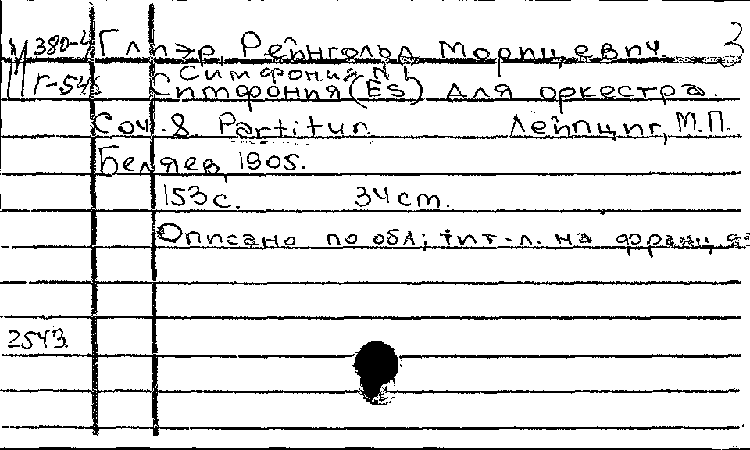 М 380-4 Глиэр, Рейнгольд Морицевич. 3
Г-545 Симфония N 1
Симфония (Es) для оркестра.
Соч. 8. Partitur. Лейпциг, М.П.
Беляев, 1905.
153 с. 34 cm.
Описано по обл; тит-л. на франц яз
2543